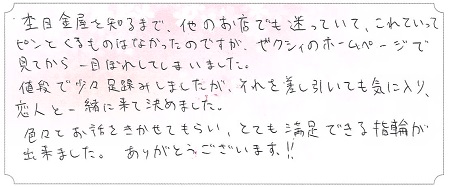 杢目金屋を知るまで、他のお店でも迷っていて、これていって
ピンとくるものはなかったのですが、ゼクシィのホームページで
見てから一目ぼれしてしまいました。
値段で少々足踏みしましたが、それを差し引いても気に入り、
恋人と一緒に来て決めました。
色々とお話をきかせてもらい、とても満足できる指輪が
出来ました。ありがとうございます!!